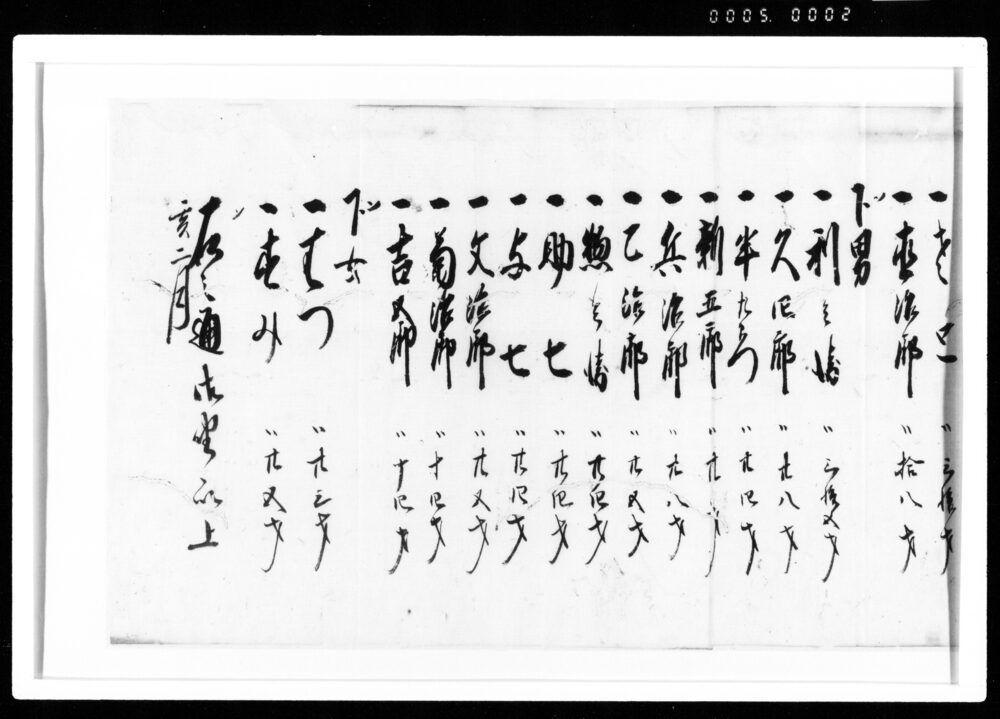 0005. 0002
一 〃三拾才
一直治郎 〃拾八才
下男
一利之 〃三拾五才
一久四郎 〃廿八才
一半九郎 〃廿四才
一新五郎 〃廿才
一兵治郎 〃廿八才
一乙治郎 〃廿五才
一惣之 〃廿四才
一助七 〃廿四才
一与七 〃廿四才
一文治郎 〃廿五才
一菊治郎 〃十四才
一吉五郎 〃十四才
下女
一まつ 〃廿三才
一すみ 〃廿五才
右之通御座候以上
亥二月